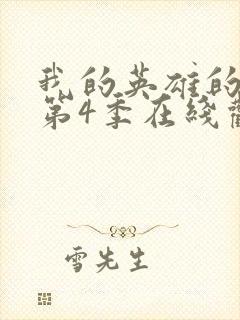 我的英雄的
第4季在线
雪先生